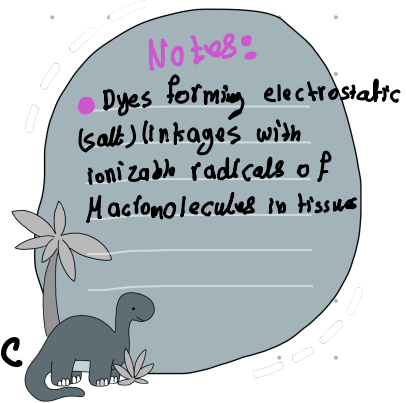 Notes:
Dyes forming electrostatic
(salt) linkages with
ionizable radicals of
Macromolecules in tissues
C